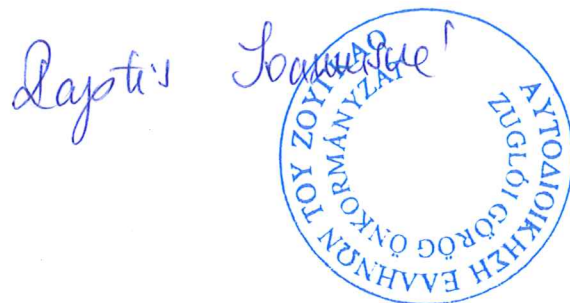 Raptis Joannisné
ΑΥΤΟΔΙΟΙΚΗΣΗ ΕΛΛΗΝΩΝ ΤΟΥ ΖΟΥΓΚΛΟ
ZUGLÓI GÖRÖG ÖNKORMÁNYZAT